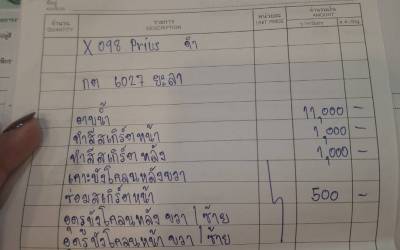 จำนวน รายการ หน่วยละ จำนวนเงิน
QUANTITY DESCRIPTION UNIT PRICE AMOUNT
X 098 Prius ดำ
กต 6027 ยะลา
อาบน้ำ 11,000 -
ทำสีสเกิร์ตหน้า 1,000 -
ทำสีสเกิร์ตหลัง 1,000 -
เคาะบังโคลนหลังขวา
ซ่อมสเกิร์ตหน้า 500 -
อุดรูบังโคลนหลัง ขวา / ซ้าย
อุดรูบังโคลนหน้า ขวา / ซ้าย